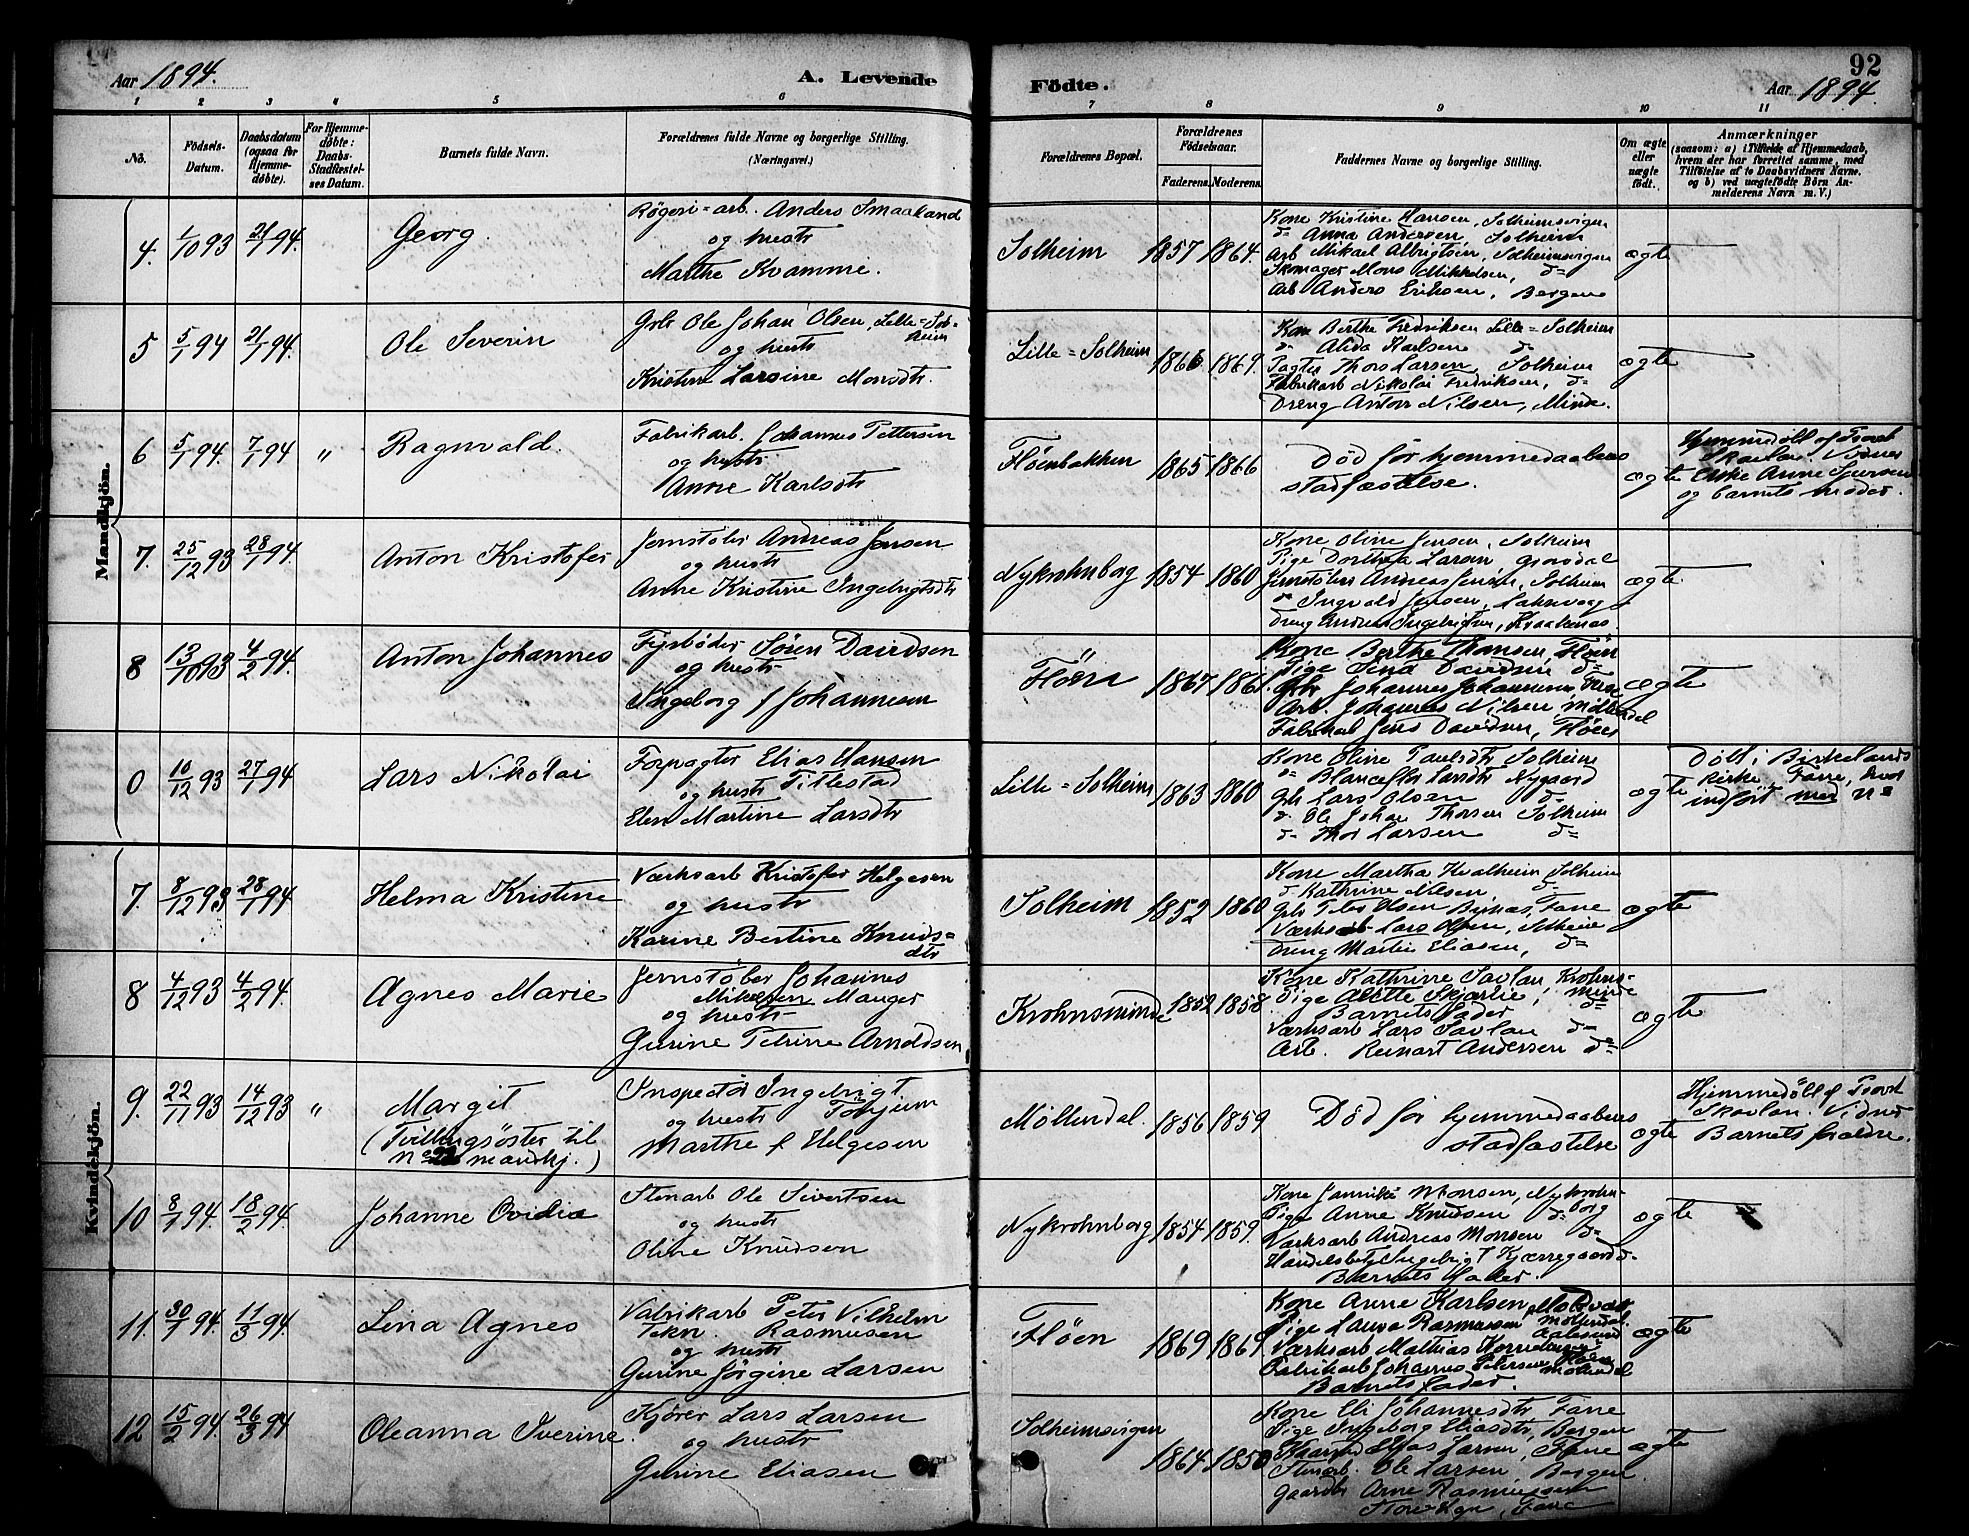 Aar 1894.
A. Levende
Födte.
92
Aar 1894.
1 2 3 4 5 6 7 8 9 10 11
No.
Födsels-Datum.
Daabsdatum (ogsaa for Hjemme-döbte).
For Hjemme-döbte: Daabs-Stadfæstel-ses Datum.
Barnets fulde Navn.
Forældrenes fulde Navne og borgerlige Stilling.
(Næringsvei.)
Forældrenes Bopæl.
Forældrenes Födselsaar.
Faderens.
Moderens.
Faddernes Navne og borgerlige Stilling.
Om ægte eller uægte födt.
Anmærkninger
(saasom: a) i Tilfælde af Hjemmedaab,
hvem der har forrettet samme, med
Tilföielse af to Daabsvidners Navne,
og b) ved uægtefödte Börn An-
melderens Navn m. V.)
Mandkjön.
4. 1/10 93 21/1 94. Georg.
Røgeri=arb. Anders Smaaland
og hustr
Marthe Kvamme.
Solheim 1857 1864.
Kone Kristine Hansen, Solheimsvigen
do Anna Andersen Solheim
Arb Mikael Albrigtsen, Solheimsvigen
Skomager Mons Mikkelsen, do
Arb Anders Eriksen, Bergen
ægte
5 5/1 94 21/1 94. Ole Severin
Grbr Ole Johan Olsen, Lille=Sol=
heim
og hustr
Kristine Larsine Monsdtr.
Lille=Solheim 1866 1869.
Kone Berthe Fredriksen Lille=Solheim
do Alida Karlsen do
Pagter Thors Larsen Solheim
Fabrikarb Nikolai Fredriksen, do
Dreng Anton Nilsen, Minde.
ægte
6 5/1 94. 7/1 94 " Ragnvald.
Fabrikarb. Johannes Pettersen
og hustr
Anne Karlsdtr
Fløenbakken 1865 1866
Død før hjemmedaabens
stadfæstelse.
ægte
Hjemmedøbt af Provst
Skavlan. Vidner
Enke Anne Sjursen
og barnets moder.
7. 25/12 93 28/1 94. Anton Kristofer
Jernstøber Andreas Jensen
og hustr
Anne Kristine Ingebrigtsdtr
Nykrohnborg 1854 1860
Kone Oline Jensen, Solheim
Pige Dorthea Larsen
Jernstøber Andreas Jensen, Solheim
do Ingvald Jensen, Laksevaag
Dreng Andreas Ingebrigtsen, Kraakenes.
ægte.
8 13/10 93 4/2 94. Anton Johannes
Fyrbøder Søren Davidsen
og hustr
Ingeborg f Johannesen
Fløen 1867 1861.
Kone Berthe Hansen, Fløen
Pige Sina Davidsen do
Grbr Johannes Johannesen, Fane
Arb. Johannes Nilsen Møllendal
Fabrikarb Jens Davidsen, Fløen
ægte
0 10/12 93 27/1 94. Lars Nikolai
Forpagter Elias Hansen
og hustr Tittestad
Elen Martine Larsdtr
Lille=Solheim 1863 1860
Kone Oline Paulsdtr Solheim
do Larsdtr Nygaard
Grbr Lars Olsen do
do Ole Johan Thorsen Solheim
do Thor Larsen do
ægte
Døbt i Birkelands
kirke, Fane, her
indført med No
Kvindekjön.
7. 8/12 93 28/1 94. Helma Kristine
Værksarb Kristofer Helgesen
og hustr
Karine Bertine Knuds=
dtr
Solheim 1852 1860
Kone Martha Solheim
do Kathrine Nilsen do
Grbr Peter Olsen Birkenæs, Fane
Værksarb Lars Olsen, Solheim
Dreng Martin Eliasen, do
ægte
8 4/12 93 4/2 94. Agnes Marie
Jernstøber Johannes
Mikelsen Manger
og hustr
Gurine Petrine Arnoldsen
Krohnsminde 1852 1858
Kone Kathrine Savlan, Krohns-
minde
Pige Alette Skjærlie, do
Barnets fader
Værksarb Lars Savlan do
Arb. Reinart Andersen do
ægte
9. 22/11 93 14/12 93 " Margit
(Tvillingsøster til
No 22 mandkj.)
Inspektør Ingebrigt
og hustr
Marthe f Helgesen
Møllendal. 1856 1859
Død før hjemmedaabens
stadfæstelse
ægte
Hjemmedøbt af Provst
Skavlan. Vidner
Barnets forældre.
10 8/1 94. 18/2 94. Johanne Ovidia
Stenarb Ole Sivertsen
og hustr
Oline Knudsen
Nykrohnborg 1854 1859.
Kone Jannike Monsen, Nykrohn-
borg
Pige Anne Knudsen do
Værksarb Andreas Monsen do
Handelsbetj Ingebrigt Kjærregaard do
Barnets fader.
ægte
11. 30/1 94. 11/3 94. Lina Agnes
Fabrikarb Peter Vilhelm
Tekn. Rasmusen
og hustr
Gurine Jørgine Larsen
Fløen 1869 1869
Kone Anne Karlsen,
Pige Laura Rasmusen Møllendal.
Værksarb Mathias
Aalesund
Fabrikarb Johannes Petersen Møllendal
Barnets fader.
ægte
12 15/2 94. 26/3 94 Oleanna Iverine.
Kjører Lars Larsen
og hustr
Gurine Eliasen
Solheimsvigen 1864 1850
Kone Eli Johannesdtr Fane
Pige Ingeborg Eliasdtr, Bergen
Elias Larsen, Fane
Stenarb. Ole Larsen, Bergen.
Gaardbr Arne Rasmussen
Fane
ægte